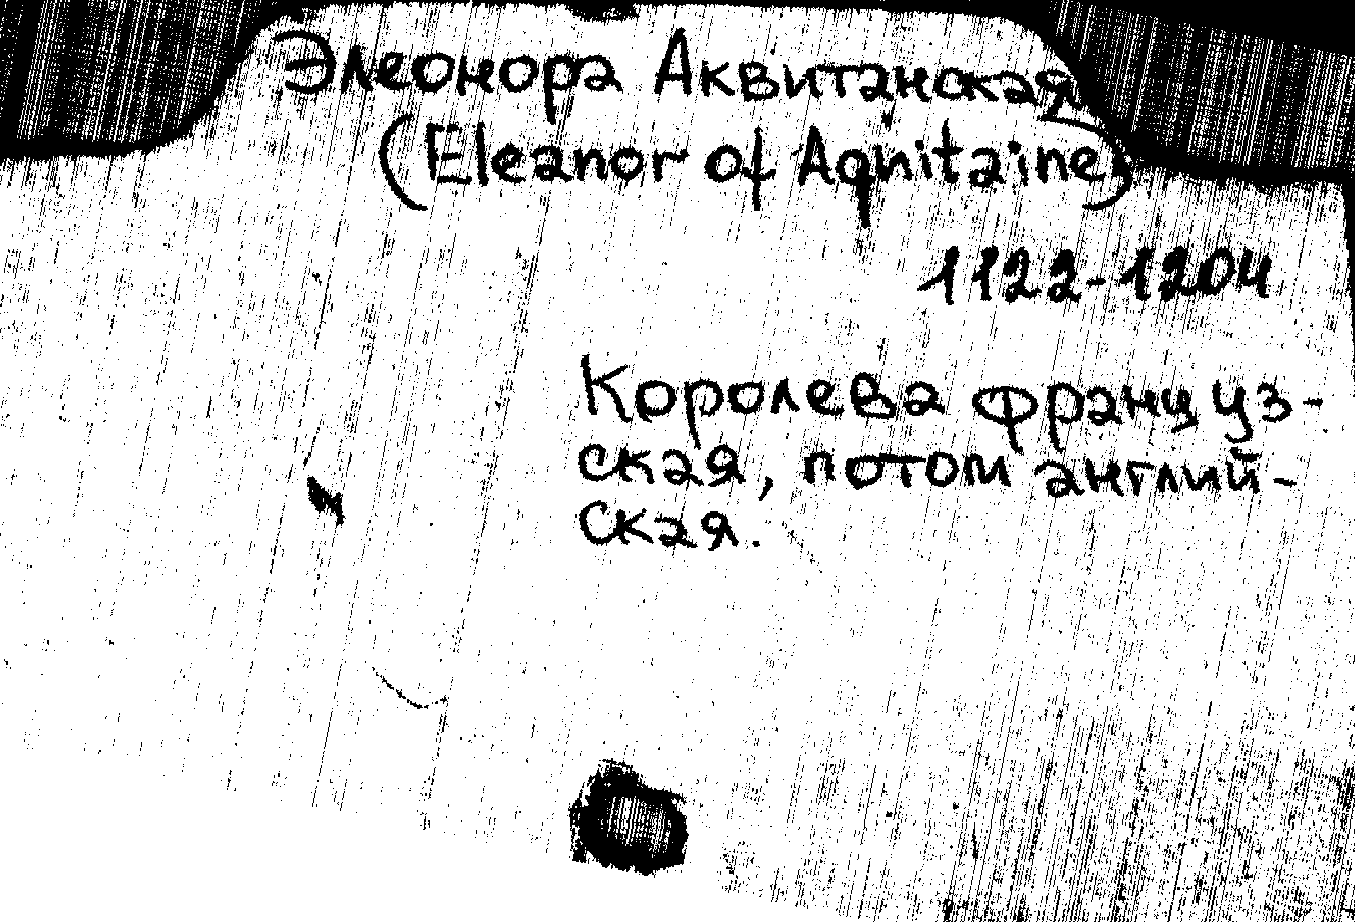 Элеонора Аквитанская
(Eleanor of Aquitaine)
1122-1204
Королева француз-
ская, потом англий-
ская.